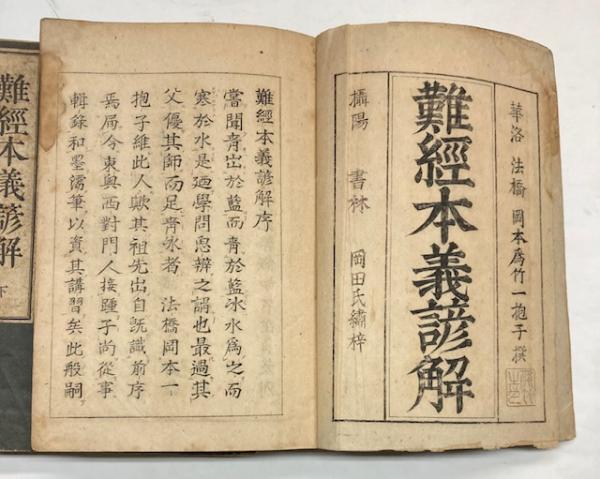 華洛 法橋 岡本爲竹一抱子 撰
難經本義諺解
攝陽 書林 岡田氏繡梓
難經本義諺解序
嘗聞青出於藍而青於藍冰水爲之而
寒於水是廼學問思辨之謂也最過其
父優其師而足青氷者 法橋岡本一
抱子維此人歟其祖先出自旣識前序
焉局今東奥西對門人接踵子尚從事
輯錄和墨濡筆以資其講習矣此般嗣
難經本義諺解 下